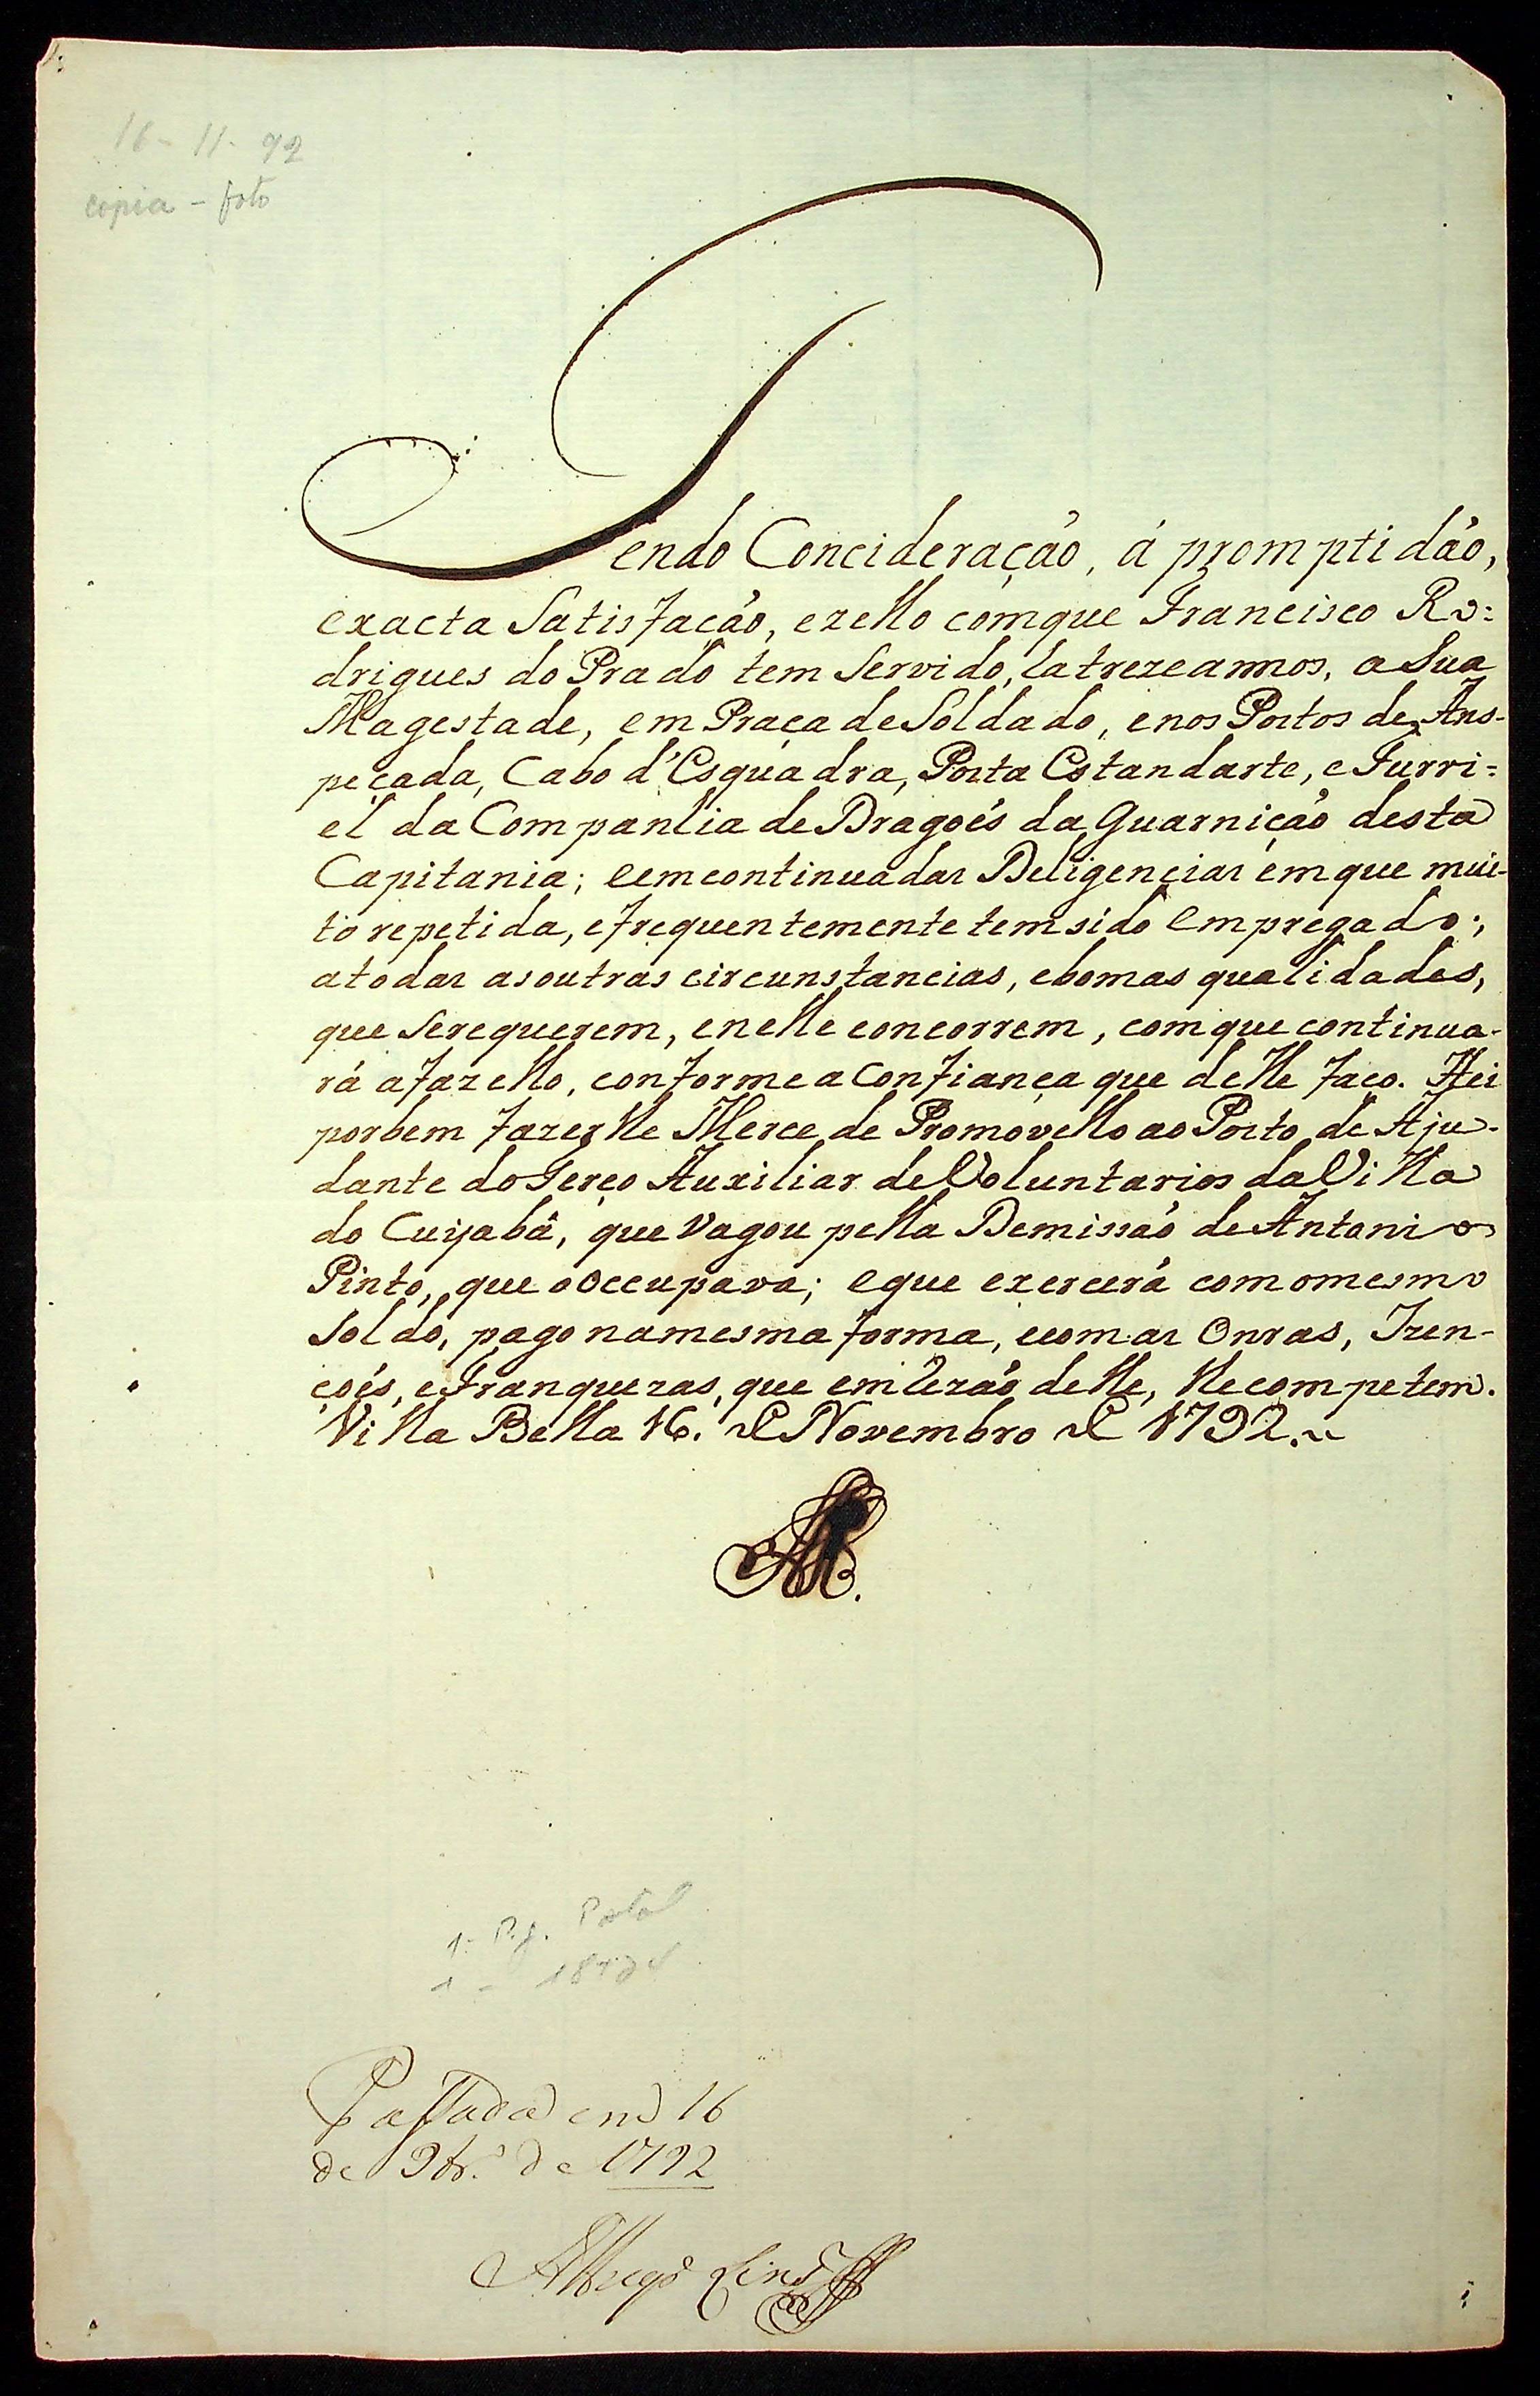 16-11-92
copia - foto
Tendo Concideração, á promptidão,
exacta Satisfação, ezello comque Francisco Ro:
drigues do Prado tem Servido, hatrezeannos, a Sua
Magestade, em Praça deSoldado, enos Postos de Ans-
peçada, Cabo d'Esquadra, Porta Estandarte, e Furri=
el da Companhia de Dragoẽs da Guarnição desta
Capitania; eemcontinuadas Deligencias emque mui-
to repetida, efrequentemente temsido empregado;
atodas asoutras circunstancias, eboas qualidades,
que Serequerem, enelle concorrem, comque continua-
rá afazello, conforme a Confiança que delle faço. Hei
porbem fazerlhe Merce de Promovello ao Posto de Aju-
dante doTerço Auxiliar deVoluntarios daVilla
do Cuyabá, que vagou pella Demissão de Antonio
Pinto, que o occupava; eque exercerá comomesmo
Soldo, pago namesma forma, ecomas Onras, Izen-
çoẽs, efranquezas, que emrezão delle, lhecompetem.
Villa Bella 16. de Novembro de 1792.
Passada em 16
de 9br.º de 1792